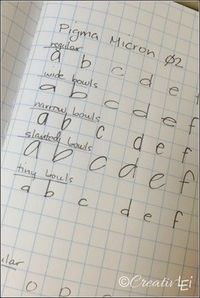 Pigma Micron Ø2
regular
a b c d e f
wide bowls
a b c d e f
narrow bowls
a b c d e f
slanted bowls
a b c d e f
tiny bowls
a b c d e f
ular
©CreativLEI